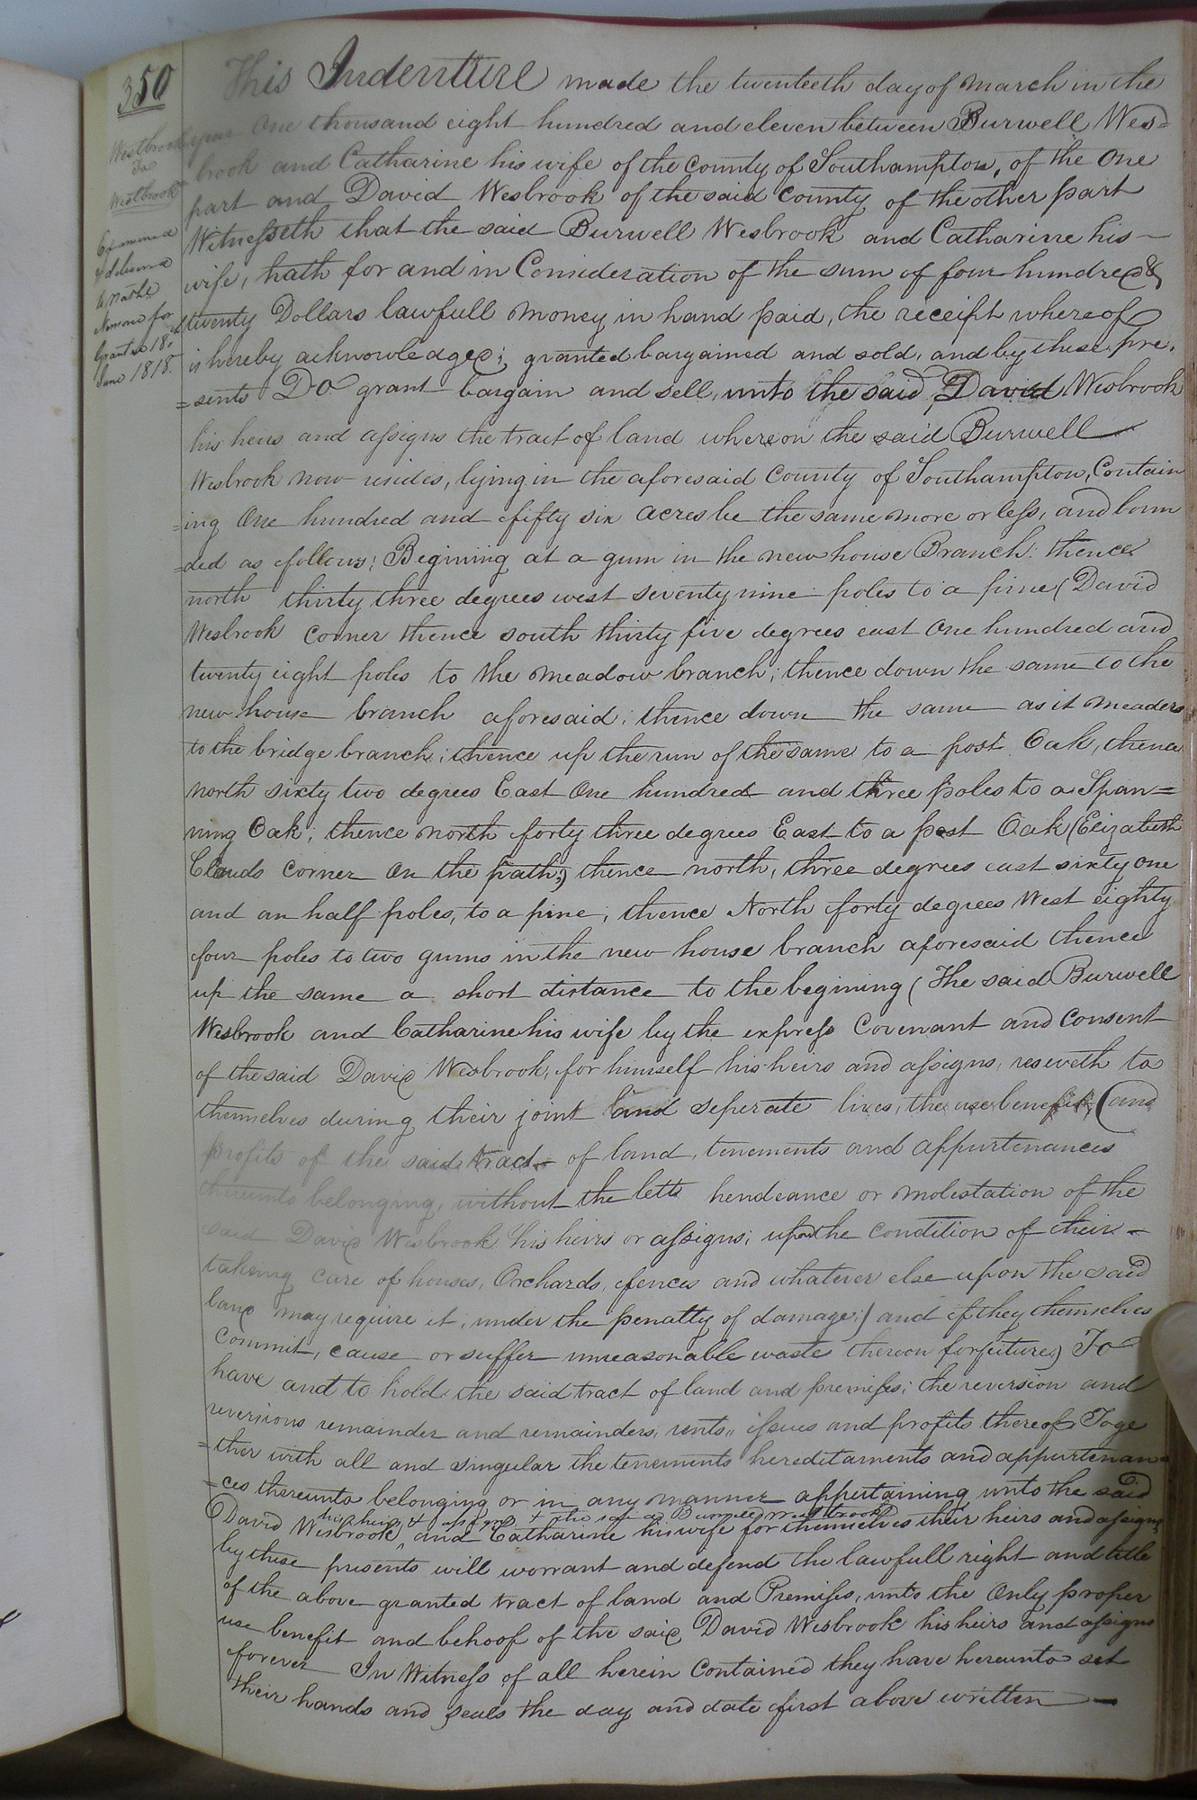 350
Westbrook
To
Westbrook
Examined
& delivered
June 1818.
This Indenture made the twentieth day of March in the
year One thousand eight hundred and eleven between Burwell Wes=
brook and Catharine his wife of the County of Southampton, of the One
part and David Wesbrook of the said County of the other part
Witnesseth that the said Burwell Wesbrook and Catharine his
wife, hath for and in Consideration of the sum of four hundred &
twenty Dollars lawfull money in hand paid, the receipt whereof
is hereby acknowledged; granted bargained and sold, and by these pre,
=sents Do grant bargain and sell, unto the said David Wesbrook
his heirs and assigns the tract of land whereon the said Burwell
Wesbrook now resides, lying in the aforesaid County of Southampton, Contain
=ing One hundred and fifty six acres be the same more or less, and boun
=ded as follows; Begining at a gum in the new house Branch: thence
north thirty three degrees west seventy nine poles to a pine (David
Wesbrook corner thence south thirty five degrees east One hundred and
twenty eight poles to the meadow branch; thence down the same to the
new house branch aforesaid; thence down the same as it meaders
to the bridge branch; thence up the run of the same to a post Oak, thence
north sixty two degrees East One hundred and three poles to a Span=
ning Oak; thence north forty three degrees East to a post Oak (Elizabeth
Clauds corner on the path;) thence north, three degrees east sixty one
and an half poles, to a pine; thence North forty degrees West eighty
four poles to two gums in the new house branch aforesaid thence
up the same a short distance to the begining (The said Burwell
Wesbrook and Catharine his wife by the express Covenant and Consent
of the said David Wesbrook, for himself his heirs and assigns, reserveth to
themselves during their joint and seperate lives, the use benefit, (and
profits of the said tract of land, tenements and appurtenances
thereunto belonging, without the letts hendeance or molestation of the
said David Wesbrook his heirs or assigns; upon the condition of their
takeing care of houses, Orchards, fences and whatever else upon the said
land may require it, under the penalty of damage;) and if they themselves
commit, cause or suffer unreasonable waste thereon forfeiture) To
have and to hold the said tract of land and premises; the reversion and
reversions remainder and remainders, rents, issues and profits thereof Toge
=ther with all and singular the tenements hereditaments and appurtenan=
=ces thereunto belonging or in any manner appertaining unto the said
his heirs & assigns & the said Burwell Westbrook
David Wesbrook, and Catharine his wife for themselves their heirs and assigns
by these presents will worrant and defend the lawfull right and title
of the above granted tract of land and Premises, unto the Only proper
use benefit and behoof of the said David Wesbrook his heirs and assigns
forever In Witness of all herein Contained they have hereunto set
their hands and seals the day and date first above written